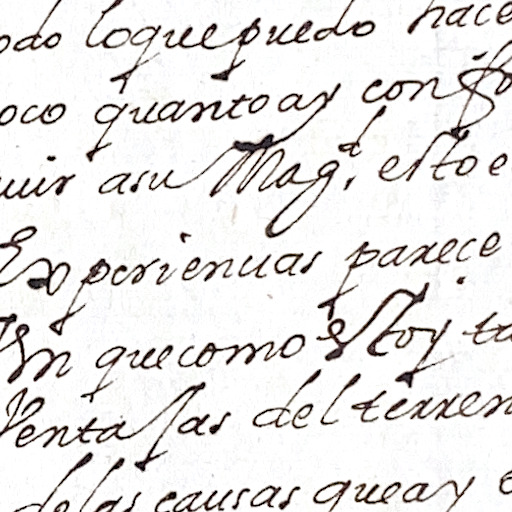 odo loquepuedo hace
oco quantoay con
uir asu Magd. esto e
Experiencias parece
En quecomo estoy ta
Ventajas del terren
delas causas queay e